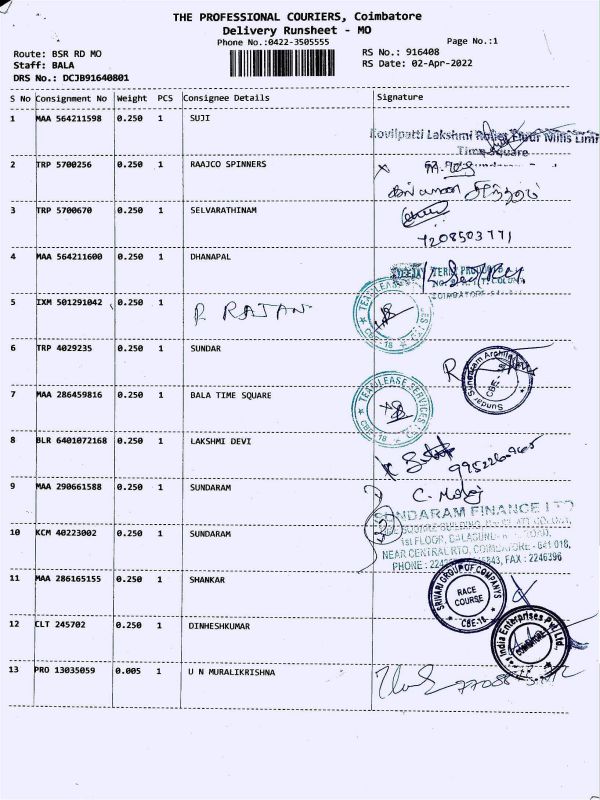 THE PROFESSIONAL COURIERS, Coimbatore
Delivery Runsheet - MO
Phone No.:0422-3505555
Page No.:1
Route: BSR RD MO
RS No.: 916408
Staff: BALA
RS Date: 02-Apr-2022
DRS No.: DCJB91640801
S No Consignment No Weight PCS Consignee Details Signature
1 MAA 564211598 0.250 1 SUJI
Kovilpatti Lakshmi Roller Flour Mills Limi
Time Square
2 TRP 5700256 0.250 1 RAAJCO SPINNERS
3 TRP 5700670 0.250 1 SELVARATHINAM
7208503771
4 MAA 564211600 0.250 1 DHANAPAL
5 IXM 501291042 0.250 1 R RAJAN
TEAMLEASE SERVICES LTD CBE-18
6 TRP 4029235 0.250 1 SUNDAR
Sundar Sundaram Architects CBE-18
7 MAA 286459816 0.250 1 BALA TIME SQUARE
TEAMLEASE SERVICES LTD CBE-18
8 BLR 6401072168 0.250 1 LAKSHMI DEVI
9 MAA 290661588 0.250 1 SUNDARAM
SUNDARAM FINANCE LTD
10 KCM 40223002 0.250 1 SUNDARAM
1st FLOOR, BALASUND ROAD,
NEAR CENTRAL RTO, COIMBATORE - 641 018,
FAX : 2246396
11 MAA 286165155 0.250 1 SHANKAR
SRIVARI GROUP OF COMPANYS RACE COURSE CBE-18
12 CLT 245702 0.250 1 DINHESHKUMAR
India Enterprises Pvt Ltd.
13 PRO 13035059 0.005 1 U N MURALIKRISHNA